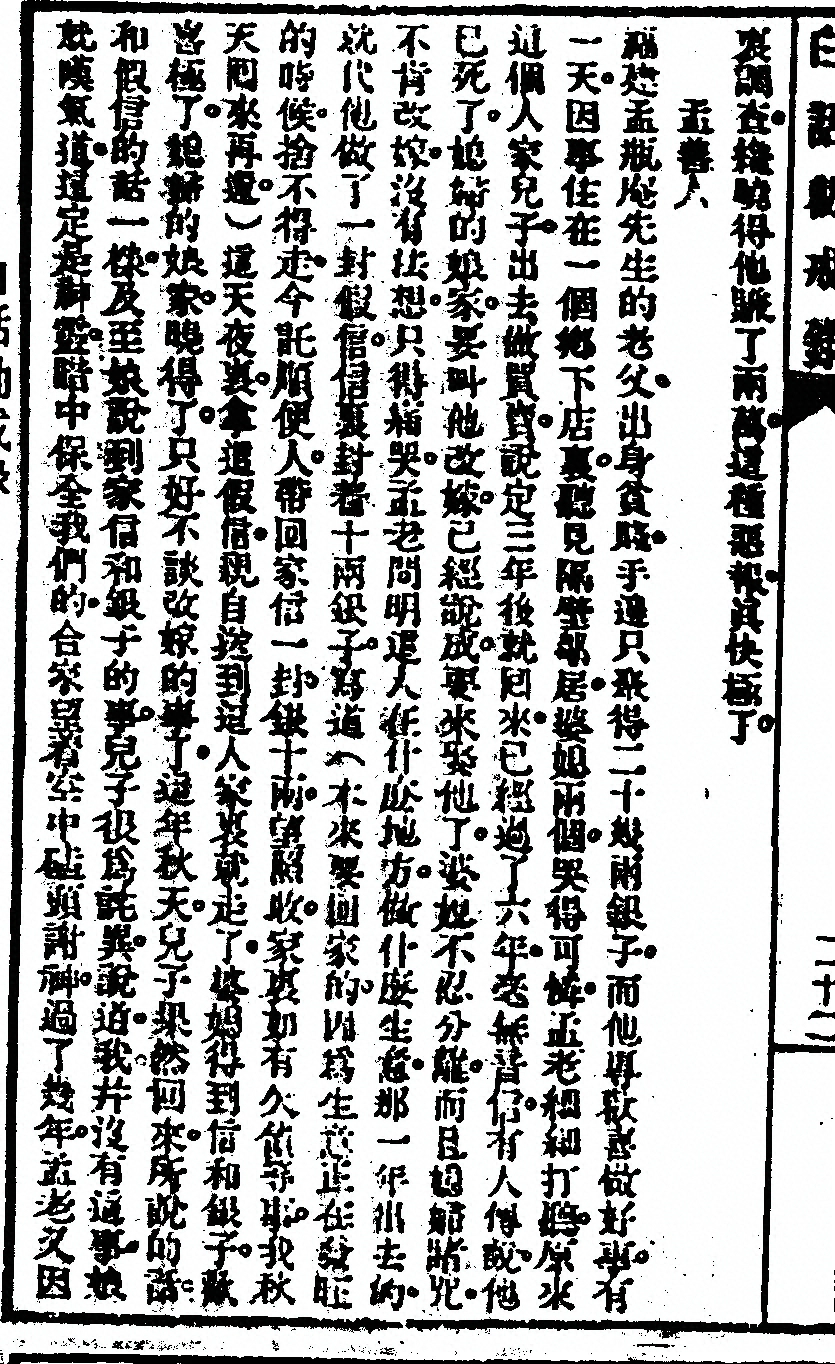 白話勸戒錄
二十二
裏調查纔曉得他賺了兩萬這種惡報眞快極了
孟善人
福建孟瓶庵先生的老父出身貧賤手邊只張得二十幾兩銀子而他專歡喜做好事有
一天因事住在一個鄉下店裏聽見隔壁鄰居婆媳兩個哭得可憐孟老細細打聽原來
這個人家兒子出去做買賣說定三年後就回來已經過了六年毫無音信有人傳說他
已死了媳婦的娘家要叫他改嫁已經說成要來娶他了婆媳不忍分離而且媳婦賭咒
不肯改嫁沒有法想只得痛哭孟老問明這人在什麼地方做什麼生意那一年出去的
就代他做了一封假信信裏封着十兩銀子寫道（本來要回家的因爲生意正在發旺
的時候捨不得走今託順便人帶回家信一封銀十兩望照收家裏如有欠債等事我秋
天回來再還）這天夜裏拿這假信親自送到這人家裏就走了婆媳得到信和銀子歡
喜極了媳婦的娘家曉得了只好不談改嫁的事了這年秋天兒子果然回來所說的話
和假信的話一樣及至娘說到家信和銀子的事兒子很爲詫異說道我并沒有這事娘
就嘆氣道這定是神靈暗中保全我們的合家望着空中磕頭謝神過了幾年孟老又因